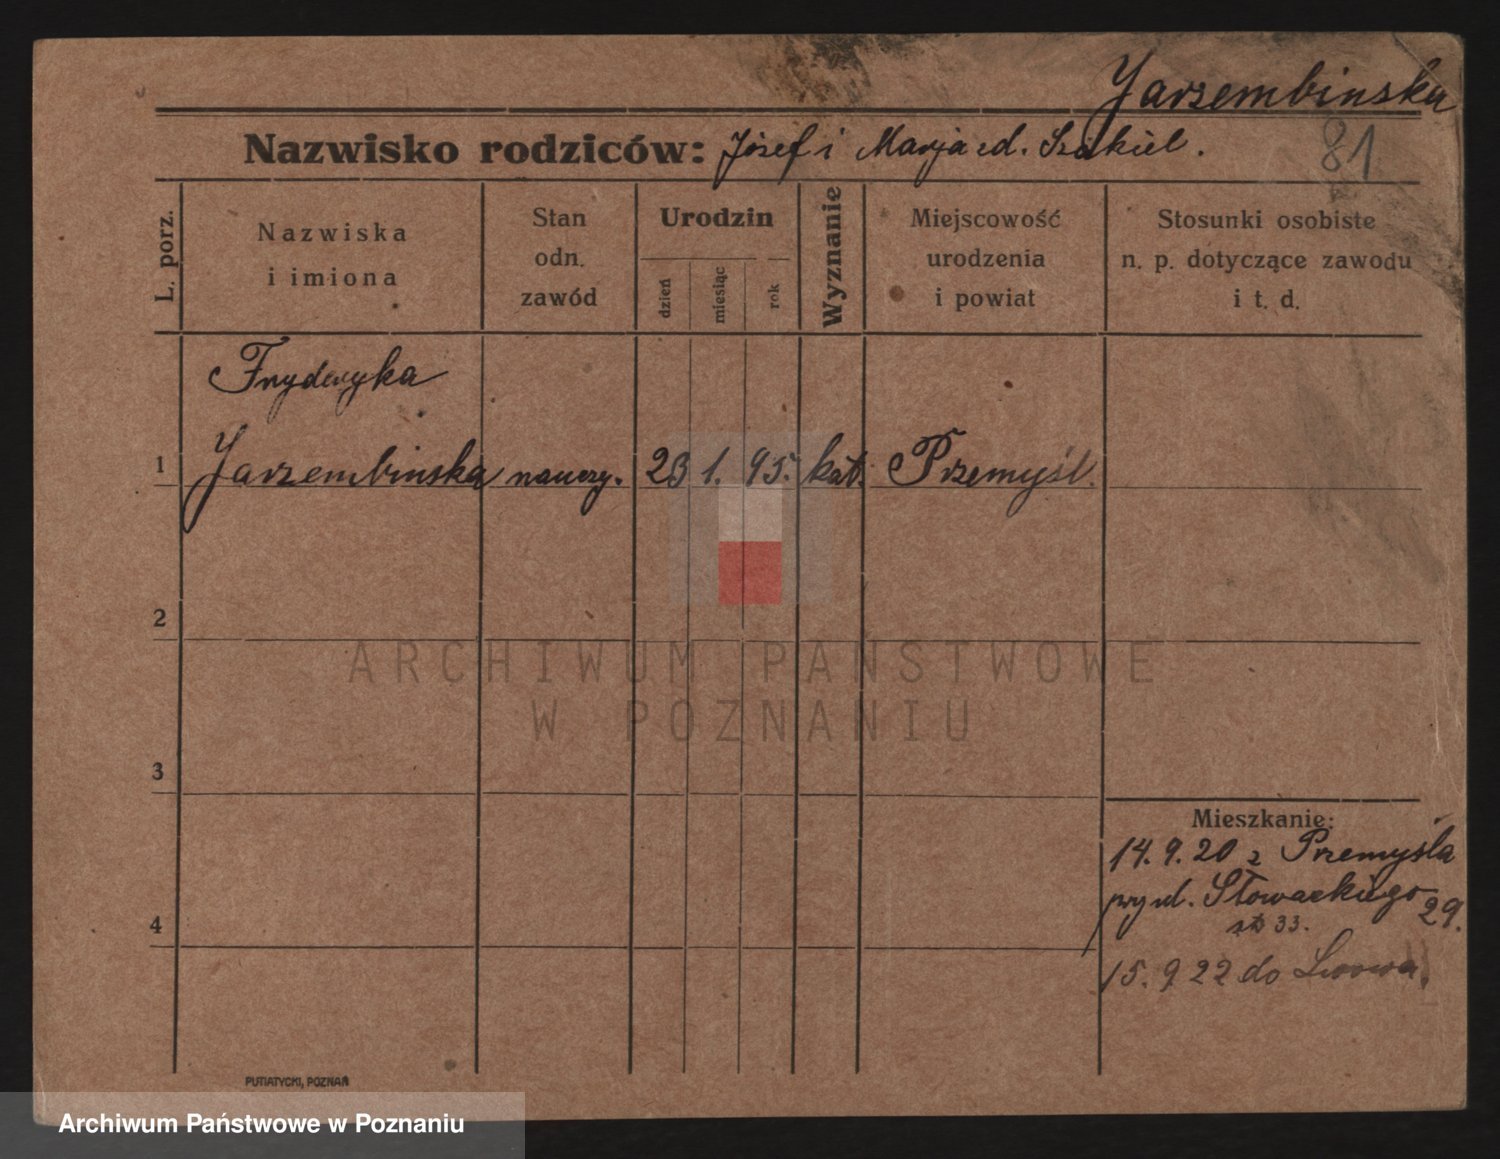 Jarzembinska
81
Nazwisko rodziców: Józef i Marja zd. Szakiel.
L. porz.
Nazwiska
i imiona
Stan
odn.
zawód
Urodzin
dzień
miesiąc
rok
Wyznanie
Miejscowość
urodzenia
i powiat
Stosunki osobiste
n. p. dotyczące zawodu
i t. d.
Fryderyka
1 Jarzembinska nauczy. 23 1. 95. kat. Przemyśl.
2
ARCHIWUM PAŃSTWOWE
W POZNANIU
3
Mieszkanie:
14. 9. 20 z Przemyśla
przy ul. Słowackiego 29.
33.
4
15. 9 22 do Lwowa.
PUTIATYCKI, POZNAŃ
Archiwum Państwowe w Poznaniu